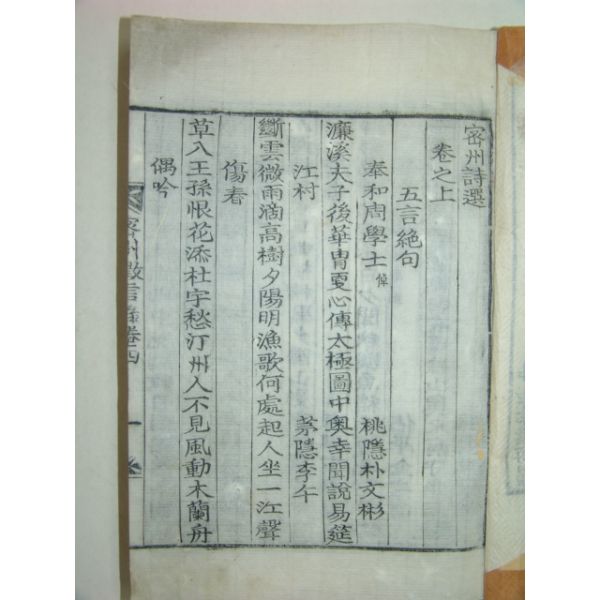 密州詩選
卷之上
五言絶句
奉和周學士 倬 桃隱朴文彬
濂溪夫子後華胄更心傳太極圖中奥幸聞說易筵
江村 茅隱李午
斷雲微雨滴高樹夕陽明漁歌何處起人坐一江聲
傷春
草入王孫恨花添杜宇愁汀州人不見風動木蘭舟
偶吟
密州徵言 卷四
一